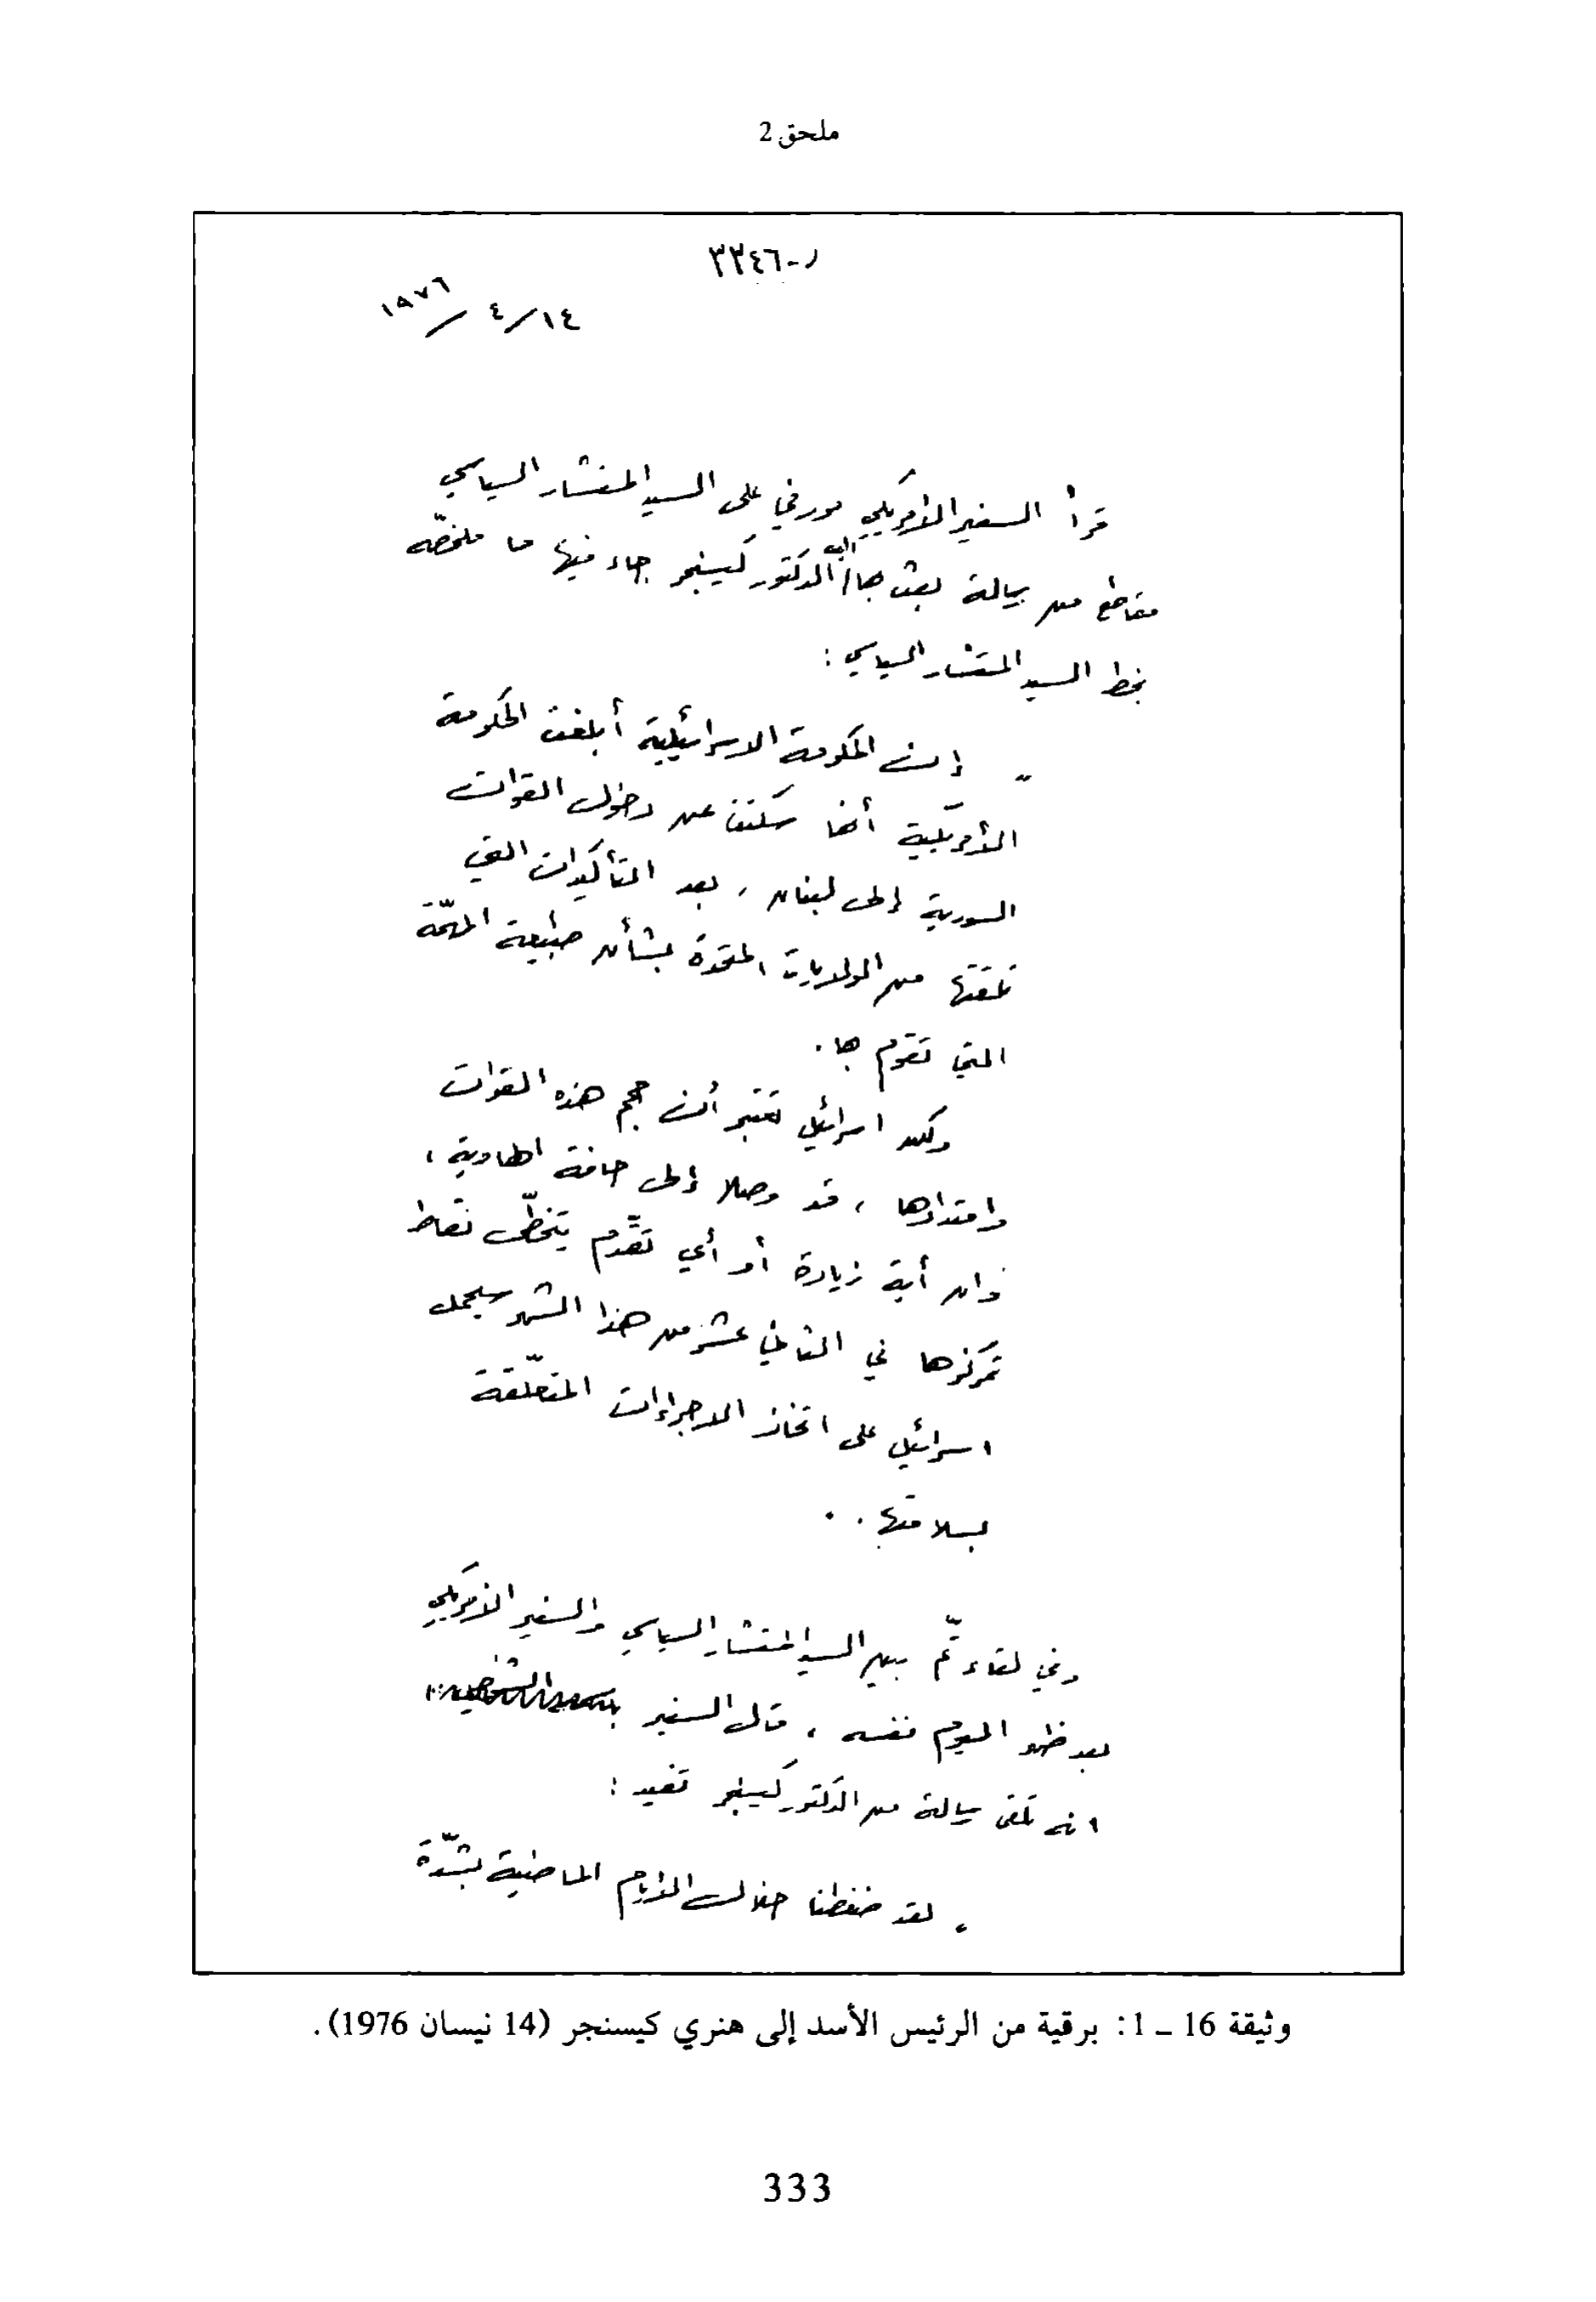 ملحق 2
ر-٣٣٤٦
١٤/٤/١٩٧٦
قرأ السفير الأمريكي مورفي على السيد المستشار السياسي
مقاطع من رسالة بعث بها إليه الدكتور كيسنجر جاء فيها ما ملخصّه
بخط السيد المستشار السياسي :
" إن الحكومة الاسرائيلية أبلغت الحكومة
الأمريكية أنها سكتت عن دخول القوات
السورية إلى لبنان ، بعد التأكيدات التي
تلقتها من الولايات المتحدة بشأن طبيعة المهمّة
التي تقوم بها .
ولكن اسرائيل تعتبر أن حجم هذه القوات
وامتدادها ، قد وصلا إلى حافة الهاوية ،
وان أية زيادة أو أي تقدّم يتخطّى نقاط
تمركزها في الثاني عشر من هذا الشهر سيحمل
اسرائيل على اتخاذ الاجراءات المتعلّقة
بسلامتها . .
وفي لقاء تمّ بين السيد المستشار السياسي والسفير الأمريكي
بعد ظهر اليوم نفسه ، قال السفير
انه تلقى رسالة من الدكتور كيسنجر تفيد :
" لقد ضغطنا خلال الأيام الماضية بشدّة
وثيقة 16 ـ 1 : برقية من الرئيس الأسد إلى هنري كيسنجر (14 نيسان 1976) .
333